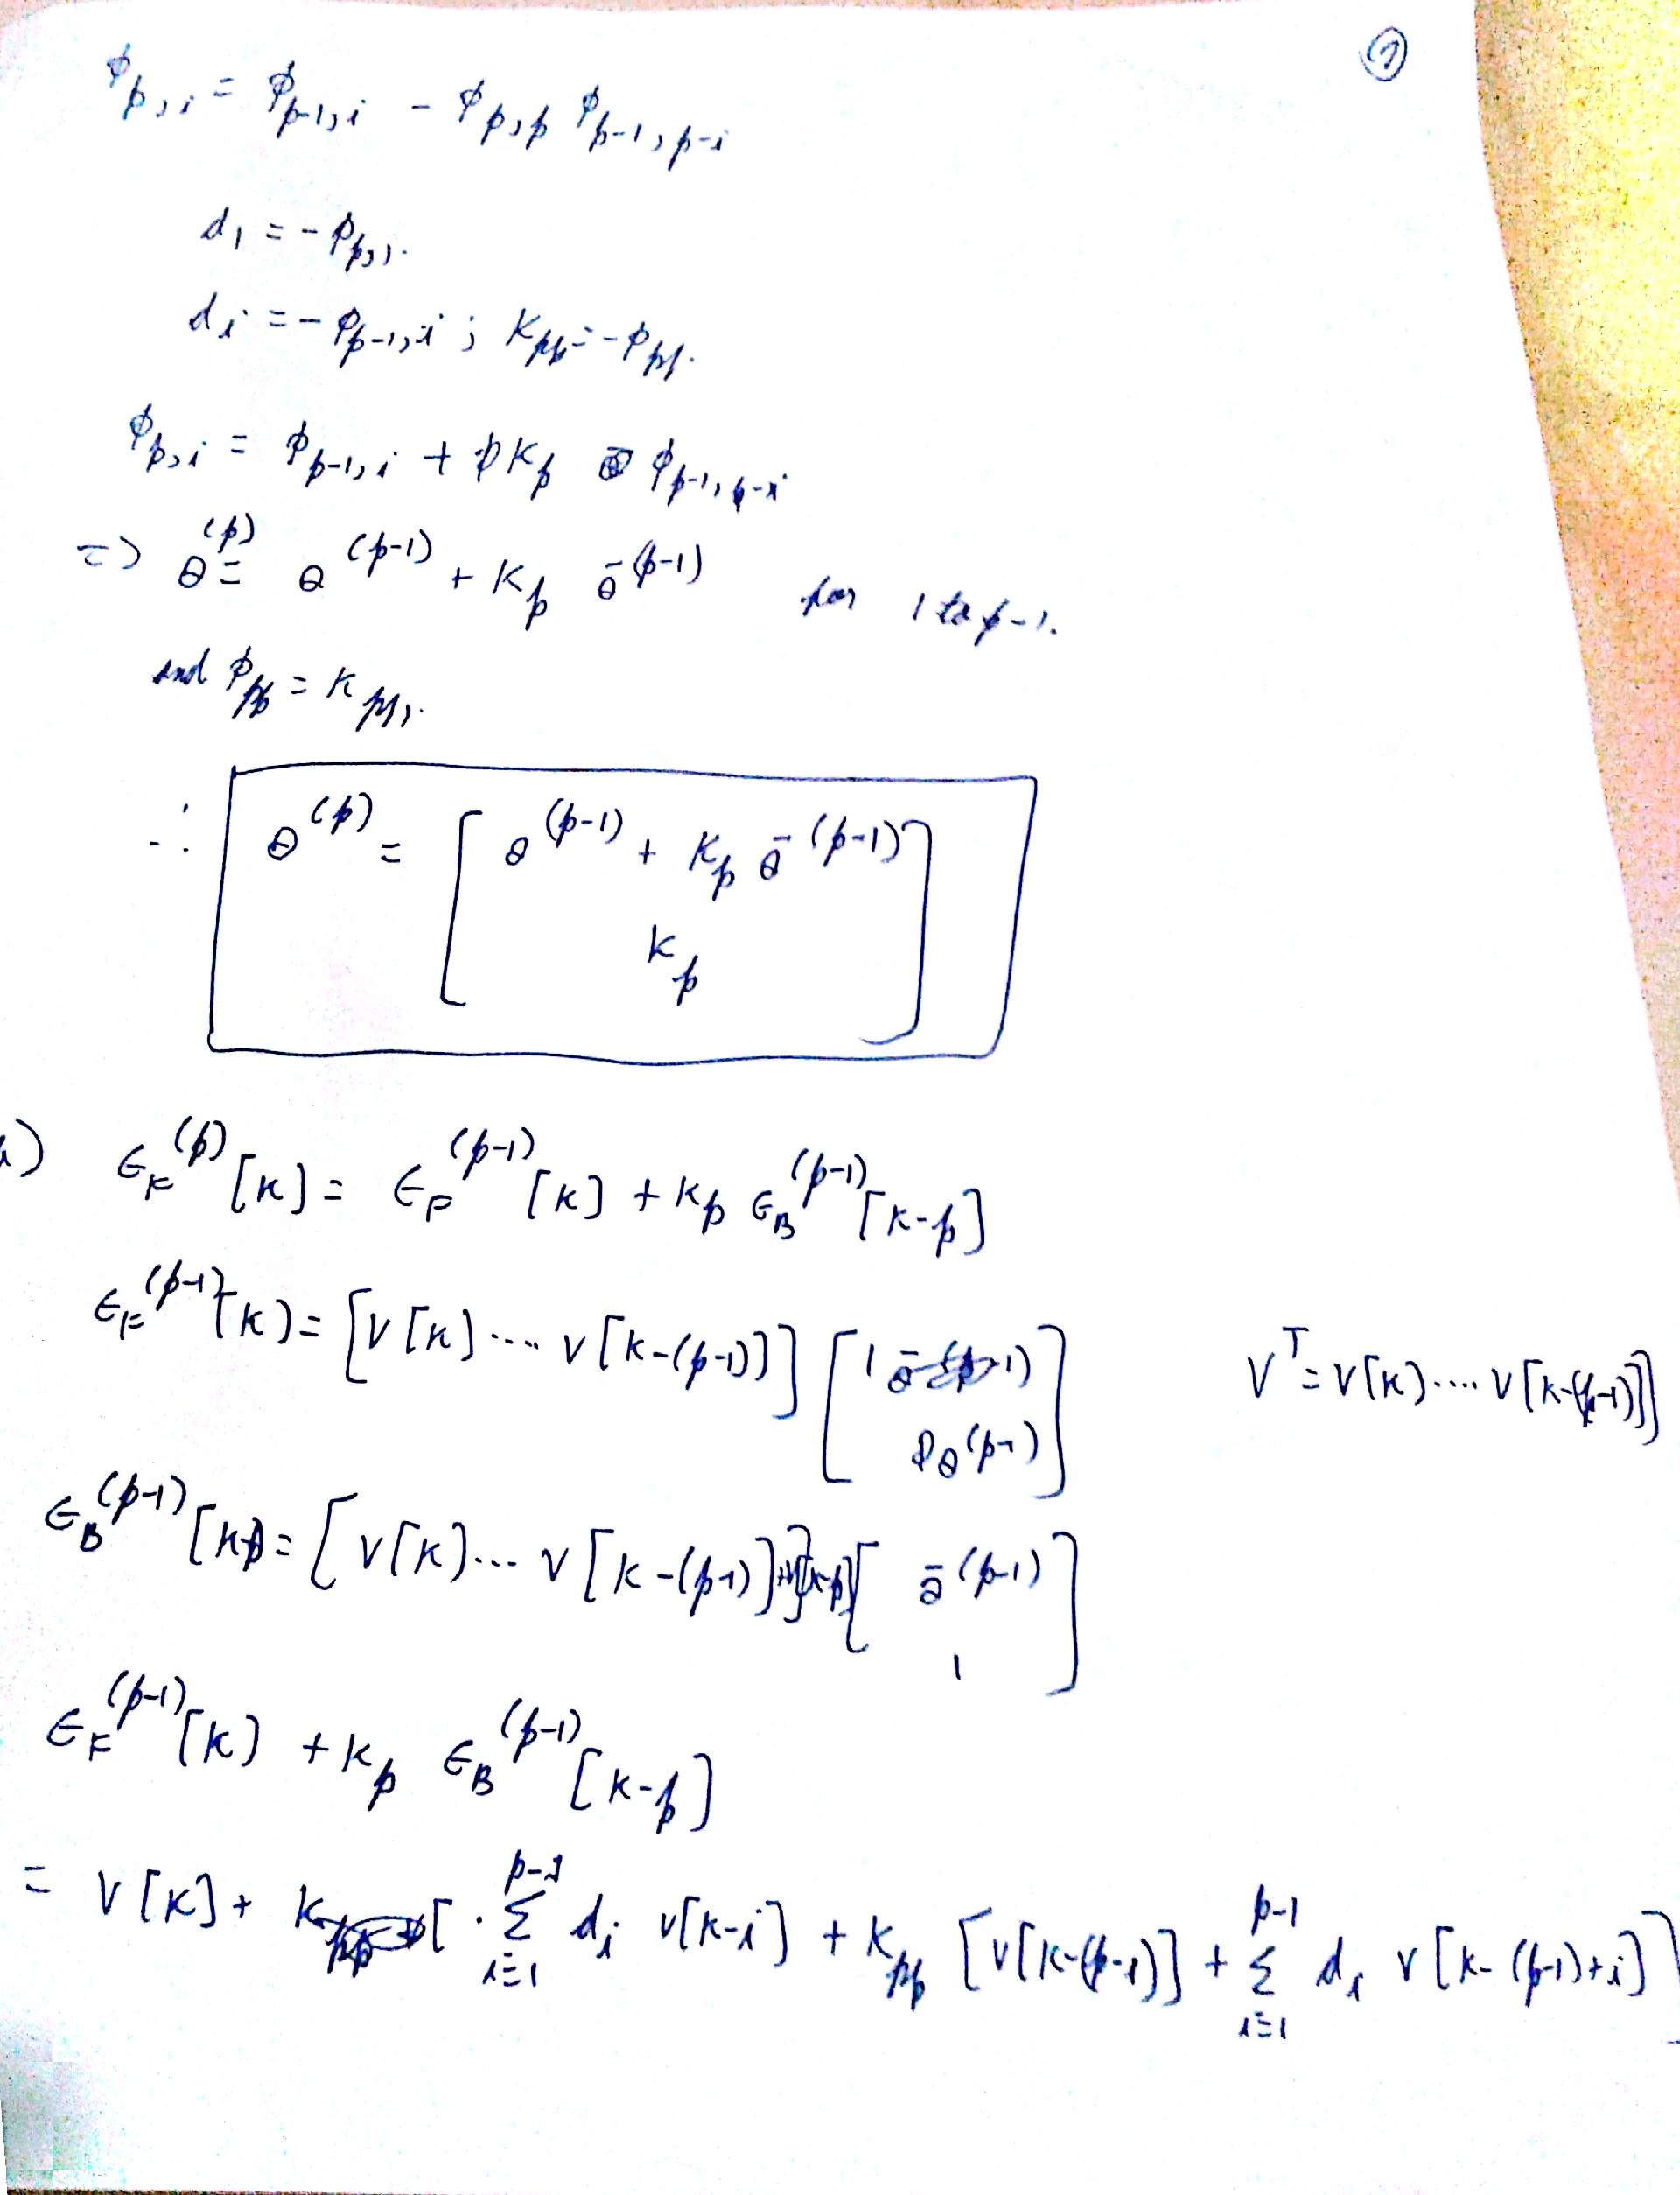 ①
ϕ_{p,i} = ϕ_{p-1,i} - ϕ_{p,p} ϕ_{p-1,p-i}
d_1 = -ϕ_{p,1}.
d_i = -ϕ_{p-1,i} ; K_{pp} = -ϕ_{pp}.
ϕ_{p,i} = ϕ_{p-1,i} + K_p ϕ_{p-1,p-i}
=> θ^{(p)} = θ^{(p-1)} + K_p θ̄^{(p-1)} for 1 to p-1.
and ϕ_{pp} = K_{pp}.
∴ θ^{(p)} = [ θ^{(p-1)} + K_p θ̄^{(p-1)}
K_p ]
ϵ_F^{(p)}[k] = ϵ_F^{(p-1)}[k] + K_p ϵ_B^{(p-1)}[k-p]
ϵ_F^{(p-1)}[k] = [v[k] .... v[k-(p-1)]] [ 1
θ^{(p-1)} ] V^T = v[k] .... v[k-(p-1)]]
ϵ_B^{(p-1)}[k-p] = [v[k] ... v[k-(p-1)] [ θ̄^{(p-1)}
1 ]
ϵ_F^{(p-1)}[k] + K_p ϵ_B^{(p-1)}[k-p]
= v[k] + [ Σ_{i=1}^{p-1} d_i v[k-i] + K_{pp} [v[k-(p-1)] + Σ_{i=1}^{p-1} d_i v[k-(p-1)+i]]